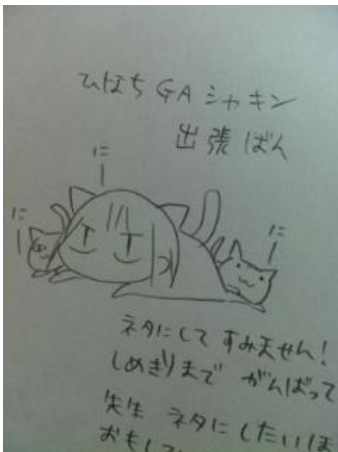 ひなち GA シャキン
出張ばん
にー
にー
にー
ネタにして すみません!
しめきりまで がんばって
先生 ネタにしたいほ
おもし